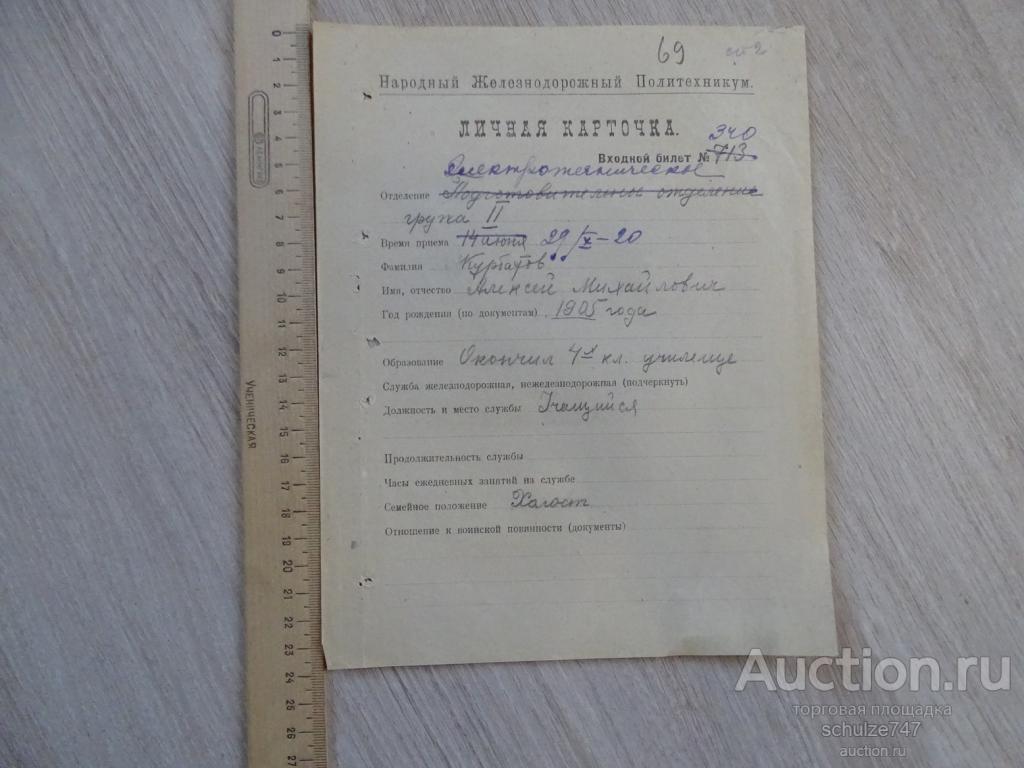 69
Народный Железнодорожный Политехникум.
ЛИЧНАЯ КАРТОЧКА.
340
Входной билет № 713
Електротехническое
Отделение Подготовительное отделение
група II
Время приема 14 июня 29/X-20
Фамилия Курбатов
Имя, отчество Алексей Михайлович
Год рождения (по документам) 1905 года
Образование Окончил 4х кл. училище
Служба железнодорожная, нежелезнодорожная (подчеркнуть)
Должность и место службы Учащийся
Продолжительность службы
Часы ежедневных занятий на службе
Семейное положение Холост
Отношение к воинской повинности (документы)
0
1
2
3
4
5
6
7
8
9
10
11
12
13
14
15
16
17
18
19
20
21
22
23
24
25
26
27
УЧЕНИЧЕСКАЯ
Auction.ru
торговая площадка
schulze747
auction.ru